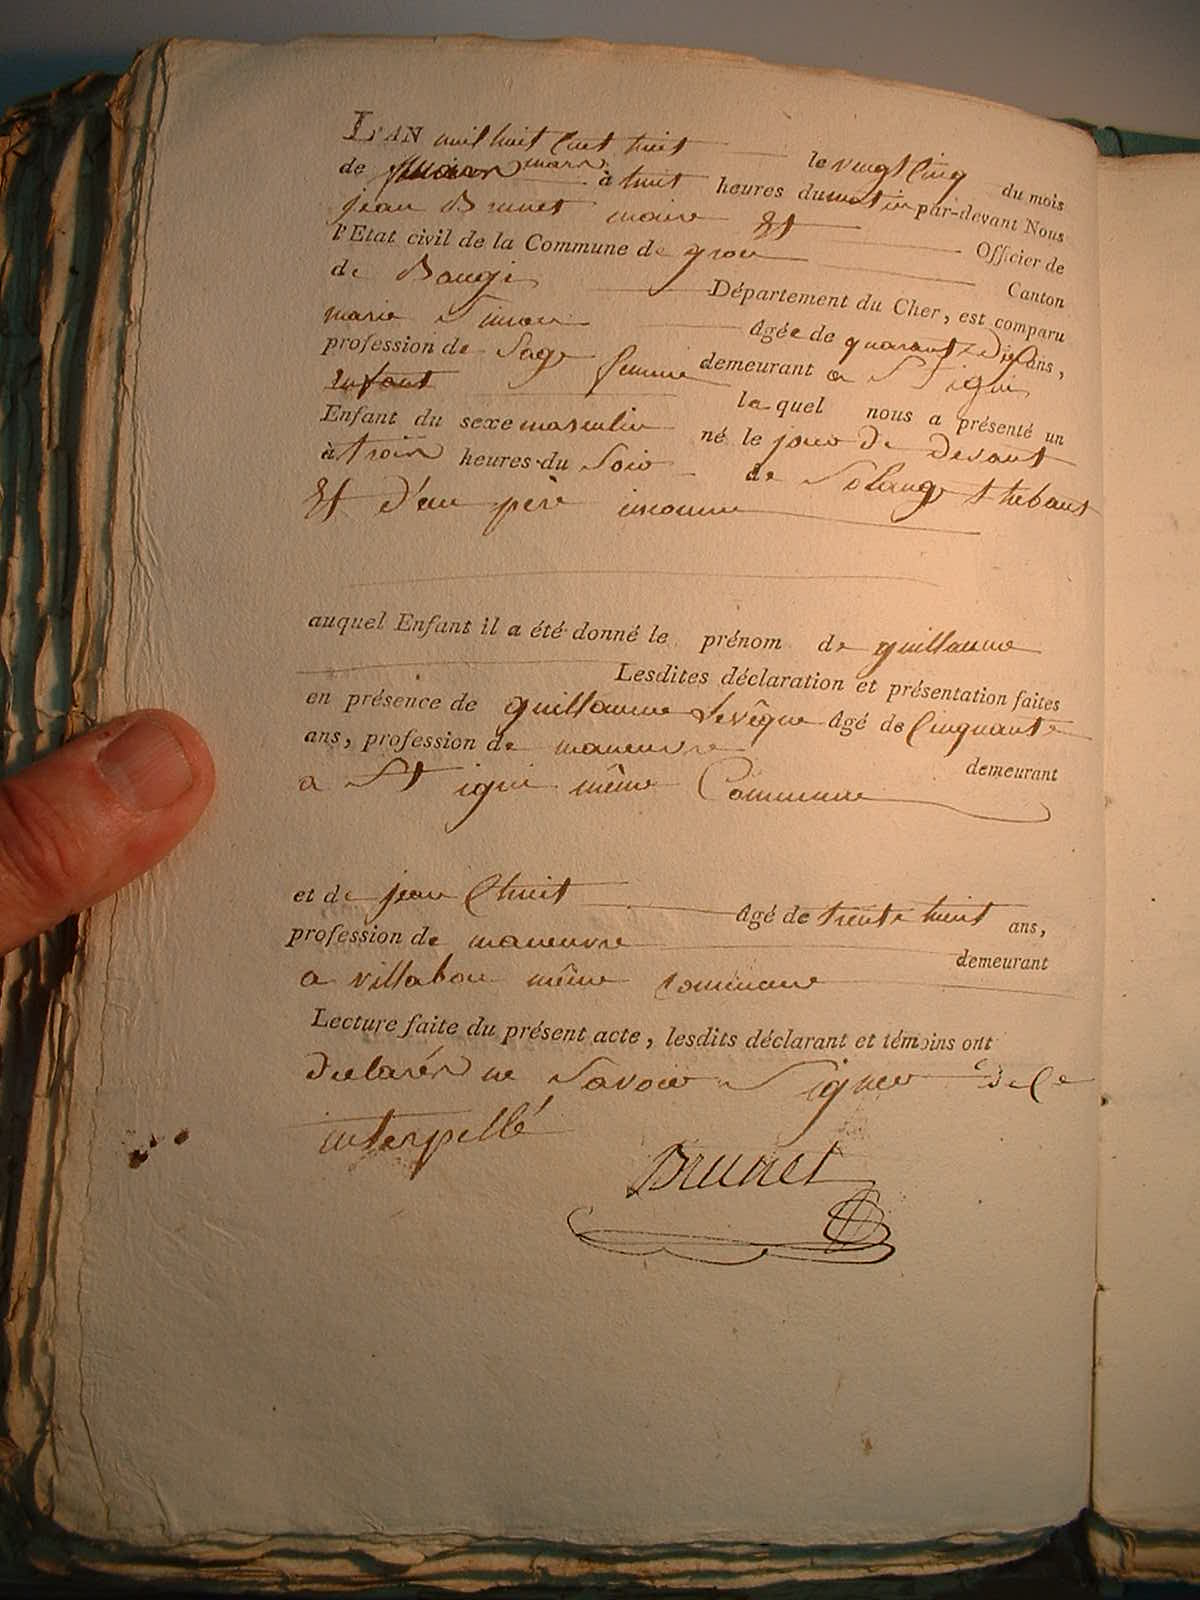 L'AN mil huit Cent huit le vingt Cinq du mois
de mars à huit heures du matin par-devant Nous
jean Brunet maire Et Officier de
l'Etat civil de la Commune de gron Canton
de Baugi Département du Cher, est comparu
marie Simon Agée de quarante Dix ans,
profession de Sage femme demeurant a St igni
enfant la quel nous a présenté un
Enfant du sexe masculin né le jour de devant
à trois heures du Soir de Solange thebaut
Et d'un père inconnu
auquel Enfant il a été donné le prénom de guillaume
Lesdites déclaration et présentation faites
en présence de guillaume Levêque Agé de Cinquante
ans, profession de maneuvre demeurant
a St igni même Commune
et de jean Chuit Agé de trente huit ans,
profession de maneuvre demeurant
a villabon même commune
Lecture faite du présent acte, lesdits déclarant et témoins ont
declarés ne Savoir Signer de Ce
interpellé
Brunet